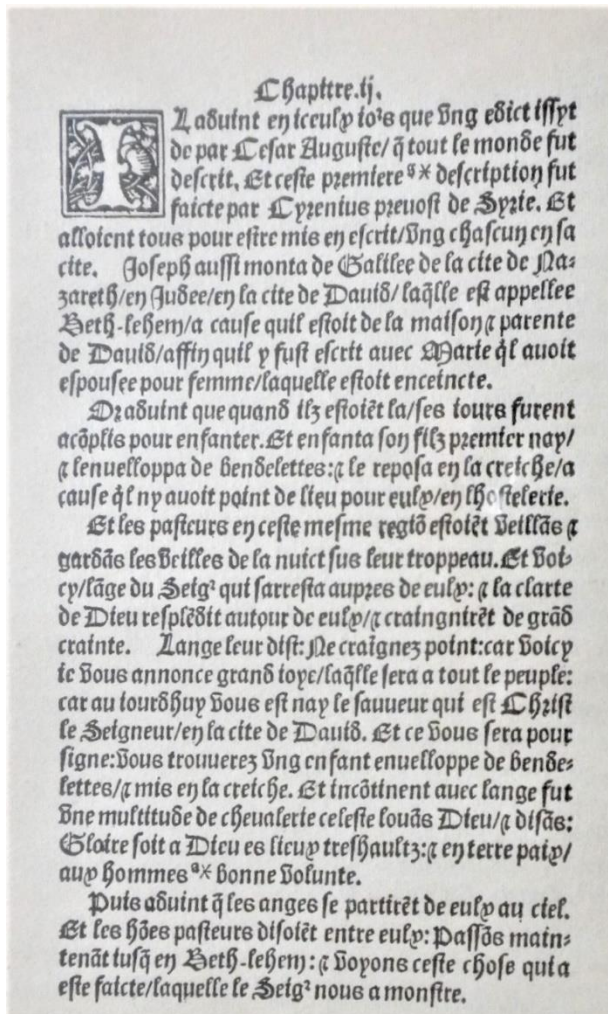 Chapitre.ij.
IL aduint en iceulx io²s que vng edict issyt
de par Cesar Auguste/ q̃ tout le monde fut
descrit. Et ceste premiere ᵍ× description fut
faicte par Cyrenius preuost de Syrie. Et
alloient tous pour estre mis en escrit/vng chascun en sa
cite. Joseph aussi monta de Galilee de la cite de Na⸗
zareth/en Judee/en la cite de Dauid/ laq̃lle est appellee
Beth-lehem/a cause quil estoit de la maison ⁊ parente
de Dauid/affin quil y fust escrit auec Marie q̃l auoit
espousee pour femme/laquelle estoit enceincte.
Or aduint que quand ilz estoiẽt la/ses iours furent
acõplis pour enfanter. Et enfanta son filz premier nay/
⁊ lenuelloppa de bendelettes:⁊ le reposa en la creiche/a
cause q̃l ny auoit point de lieu pour eulx/en lhostelerie.
Et les pasteurs en ceste mesme regiõ estoiẽt veillãs ⁊
gardãs les veilles de la nuict sus leur troppeau. Et voi⸗
cy/lãge du Seig² qui sarresta aupres de eulx: ⁊ la clarte
de Dieu resplẽdit autour de eulx/⁊ craingnirẽt de grãd
crainte. Lange leur dist: Ne craignez point:car voicy
ie vous annonce grand ioye/laq̃lle sera a tout le peuple:
car au iourdhuy vous est nay le sauueur qui est Christ
le Seigneur/en la cite de Dauid. Et ce vous sera pour
signe:vous trouuerez vng enfant enuelloppe de bende⸗
lettes/⁊ mis en la creiche. Et incõtinent auec lange fut
vne multitude de cheualerie celeste louãs Dieu/⁊ disãs:
Gloire soit a Dieu es lieux treshaultz:⁊ en terre paix/
aux hommes ᵃ× bonne volunte.
Puis aduint q̃ les anges se partirẽt de eulx au ciel.
Et les hões pasteurs disoiẽt entre eulx: Passõs main⸗
tenãt iusq̃ en Beth-lehem: ⁊ voyons ceste chose qui a
este faicte/laquelle le Seig² nous a monstre.